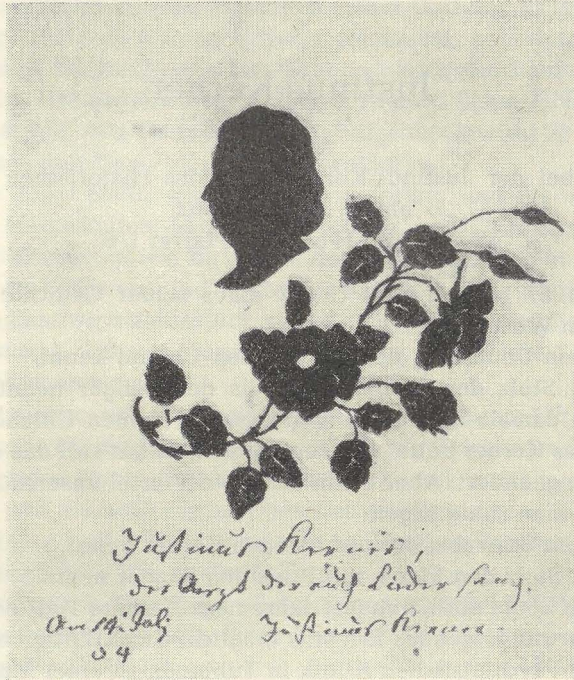 Justinus Kerner,
der Arzt der auch Lieder sang.
Am 14. Juli Justinus Kerner.
54